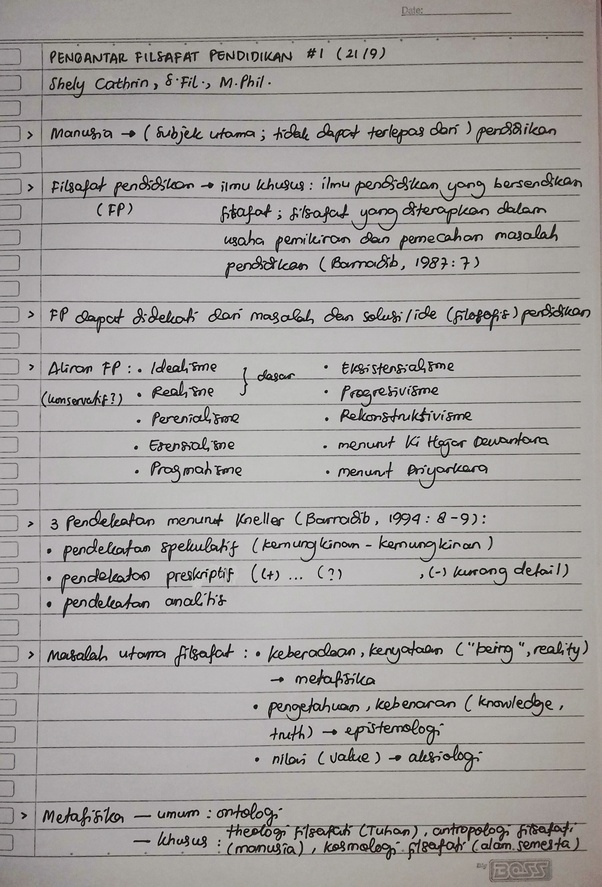 Date:
PENGANTAR FILSAFAT PENDIDIKAN #1 (21/9)
Shely Cathrin, S.Fil., M.Phil.
> Manusia → (subjek utama; tidak dapat terlepas dari) pendidikan
> Filsafat pendidikan → ilmu khusus: ilmu pendidikan yang bersendikan
(FP) filsafat; filsafat yang diterapkan dalam
usaha pemikiran dan pemecahan masalah
pendidikan (Barnadib, 1987:7)
> FP dapat didekati dari masalah dan solusi/ide (filosofis) pendidikan
> Aliran FP: • Idealisme } dasar • Eksistensialisme
(konservatif?) • Realisme • Progresivisme
• Perenialisme • Rekonstruktivisme
• Esensialisme • menurut Ki Hajar Dewantara
• Pragmatisme • menurut Driyarkara
> 3 Pendekatan menurut Kneller (Barnadib, 1994: 8-9):
• pendekatan spekulatif (kemungkinan-kemungkinan)
• pendekatan preskriptif ((+) ... (?) , (-) kurang detail)
• pendekatan analitis
> Masalah utama filsafat: • keberadaan, kenyataan ("being", reality)
→ metafisika
• pengetahuan, kebenaran (knowledge,
truth) → epistemologi
• nilai (value) → aksiologi
> Metafisika — umum: ontologi
— khusus: theologi filsafati (Tuhan), antropologi filsafati
(manusia), kosmologi filsafati (alam semesta)
By BOSS